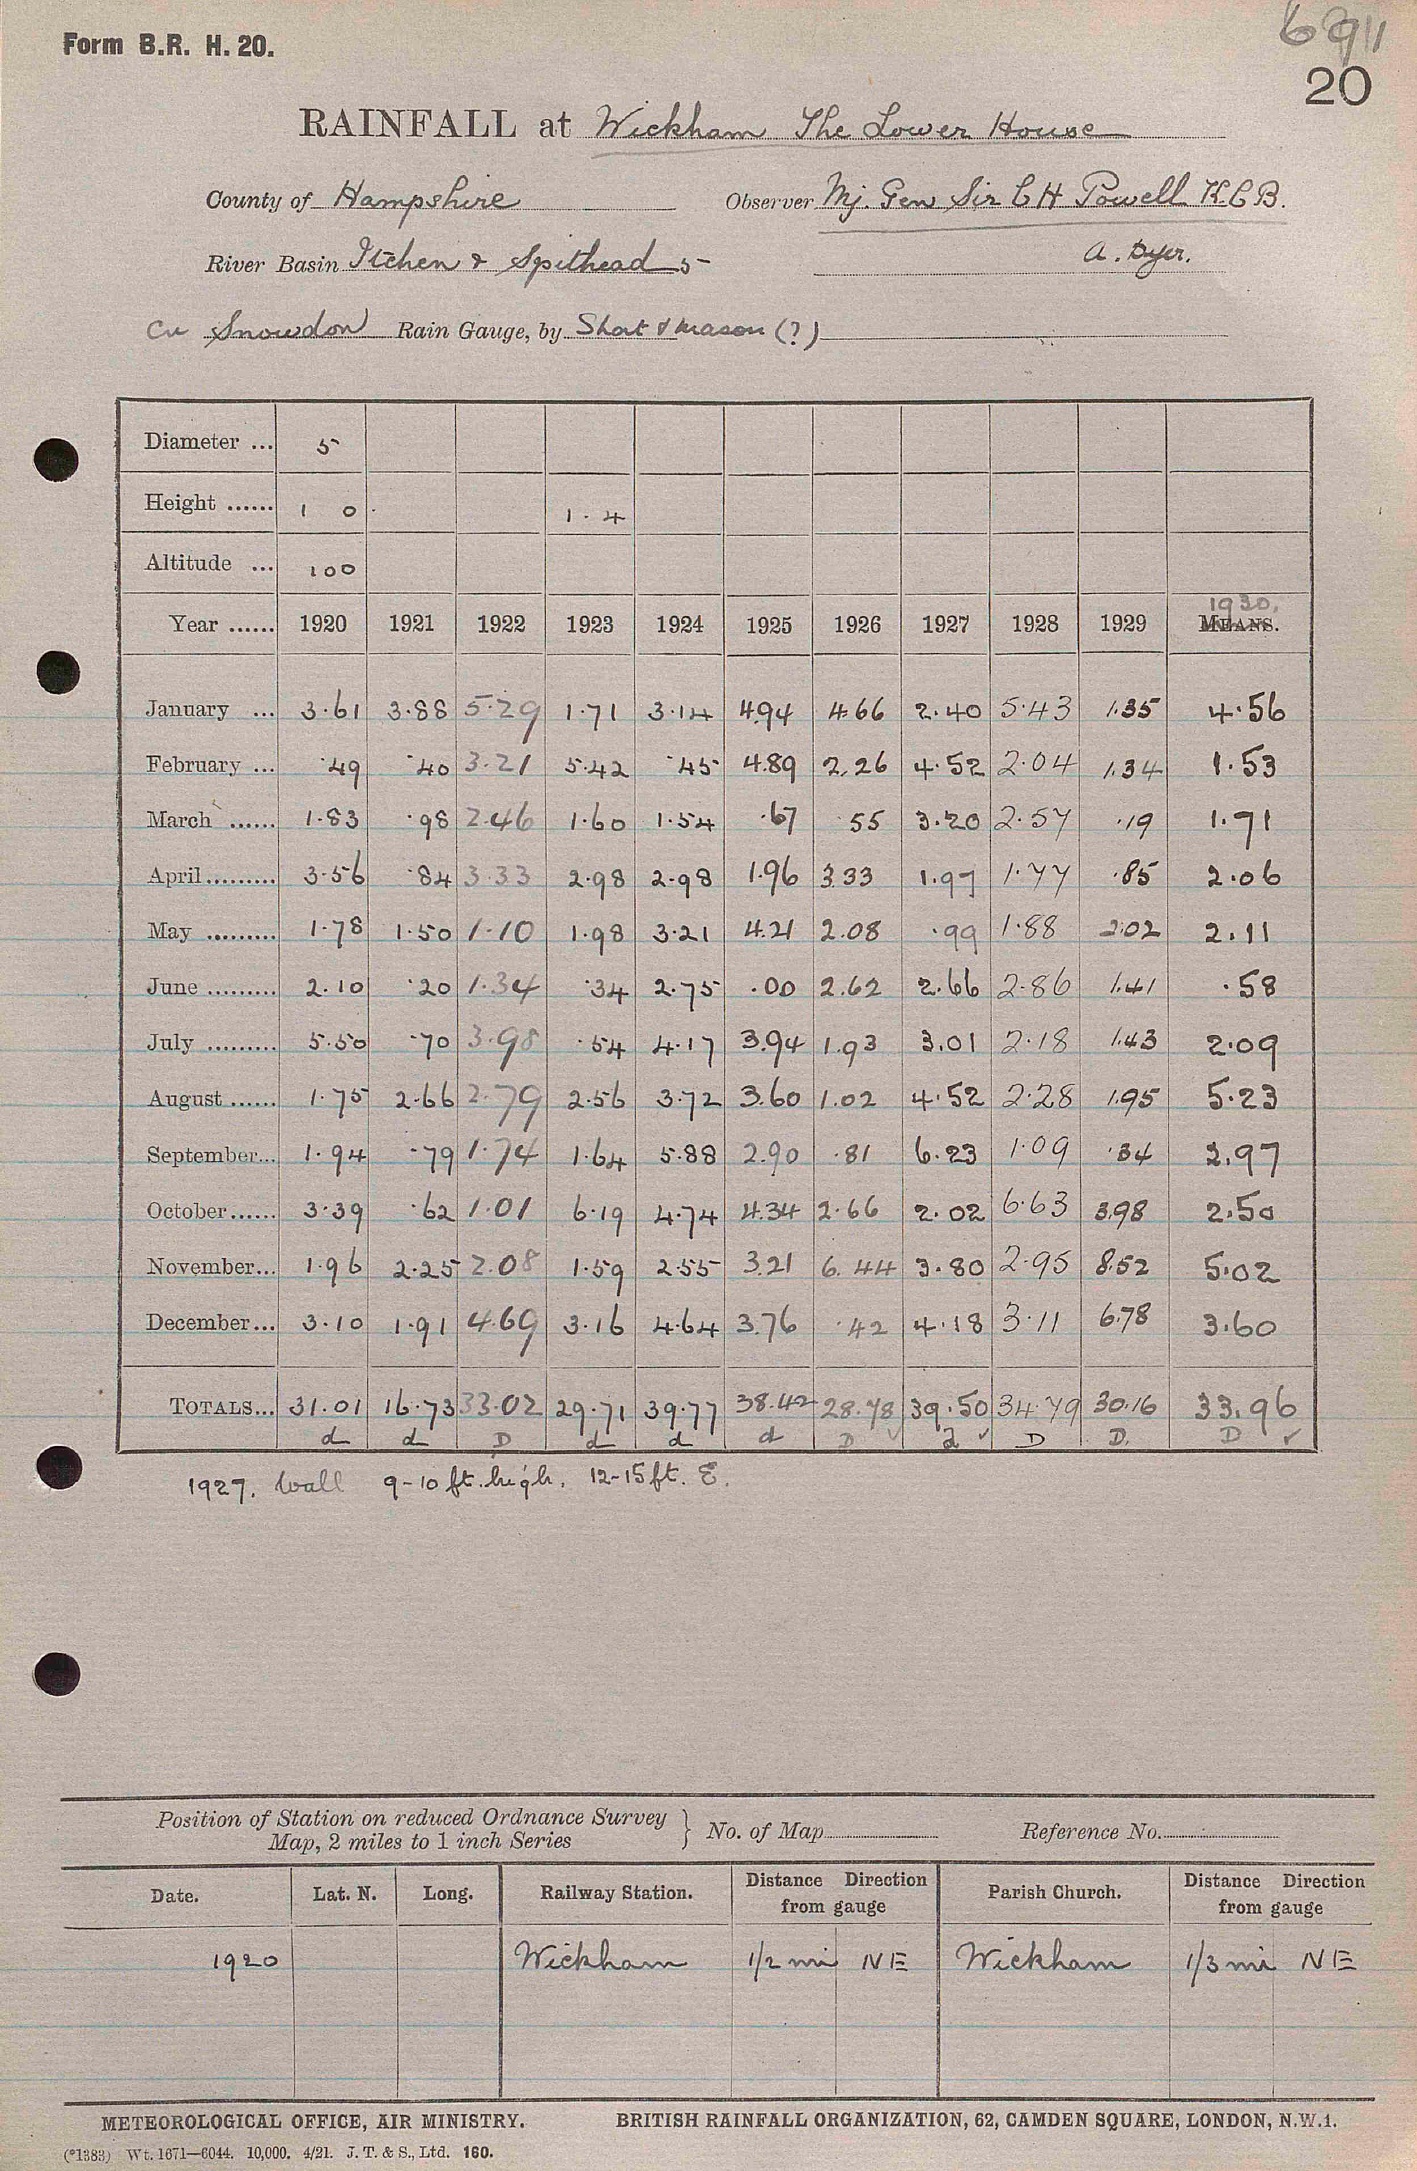 Form B.R. H. 20.
6911
20
RAINFALL at Wickham The Lower House
County of Hampshire Observer Mj. Gen Sir C H Powell K.C.B.
River Basin Itchen & Spithead 5 A. Dyer.
Cu Snowdon Rain Gauge, by Short & Mason (?)
Diameter ... 5
Height ...... 1 0 1 . 4
Altitude ... 100
1930.
Year ...... 1920 1921 1922 1923 1924 1925 1926 1927 1928 1929 MEANS.
January ... 3.61 3.88 5.29 1.71 3.14 4.94 4.66 2.40 5.43 1.35 4.56
February ... .49 .40 3.21 5.42 .45 4.89 2.26 4.52 2.04 1.34 1.53
March ...... 1.83 .98 2.46 1.60 1.54 .67 55 3.20 2.57 .19 1.71
April......... 3.56 .84 3.33 2.98 2.98 1.96 3.33 1.97 1.77 .85 2.06
May ......... 1.78 1.50 1.10 1.98 3.21 4.21 2.08 .99 1.88 2.02 2.11
June ......... 2.10 .20 1.34 .34 2.75 .00 2.62 2.66 2.86 1.41 .58
July ......... 5.50 .70 3.98 .54 4.17 3.94 1.93 3.01 2.18 1.43 2.09
August ...... 1.75 2.66 2.79 2.56 3.72 3.60 1.02 4.52 2.28 1.95 5.23
September... 1.94 .79 1.74 1.64 5.88 2.90 .81 6.23 1.09 .34 2.97
October...... 3.39 .62 1.01 6.19 4.74 4.34 2.66 2.02 6.63 3.98 2.50
November... 1.96 2.25 2.08 1.59 2.55 3.21 6.44 3.80 2.95 8.52 5.02
December... 3.10 1.91 4.69 3.16 4.64 3.76 .42 4.18 3.11 6.78 3.60
TOTALS... 31.01 16.73 33.02 29.71 39.77 38.42 28.78 39.50 34.79 30.16 33.96
d d D d d d D d D D. D
1927. Wall 9-10 ft. high. 12-15 ft. E.
Position of Station on reduced Ordnance Survey
Map, 2 miles to 1 inch Series } No. of Map Reference No.
Date. Lat. N. Long. Railway Station. Distance Direction from gauge Parish Church. Distance Direction from gauge
1920 Wickham 1/2 mi NE Wickham 1/3 mi NE
METEOROLOGICAL OFFICE, AIR MINISTRY. BRITISH RAINFALL ORGANIZATION, 62, CAMDEN SQUARE, LONDON, N.W.1.
(*1383) Wt. 1671—6044. 10,000. 4/21. J. T. & S., Ltd. 160.